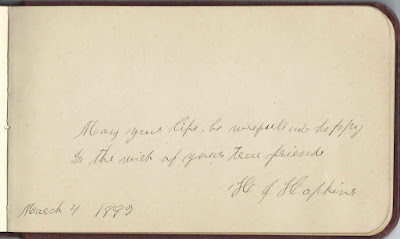 May your life be usefull and happy
Is the wish of your true friend
H J Hopkins
March 4 1883